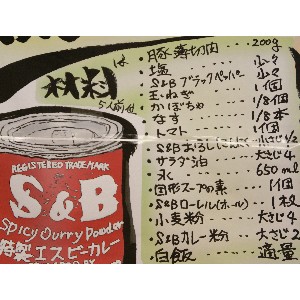 材料
5人前
は
・豚薄切肉 200g
・塩 少々
・S&Bブラックペッパー 少々
・玉ねぎ 1個
・かぼちゃ 1/8個
・なす 1/8本
・トマト 1個
・S&Bおろしにんにく 小さじ1/2
・サラダ油 大さじ4
・水 650ml
・固形スープの素 1個
・S&Bローレル(ホール) 1枚
・小麦粉 大さじ4
・S&Bカレー粉 大さじ2
・白飯 適量
REGISTERED TRADE MARK
S&B
Spicy Curry Powder
特製ヱスビーカレー